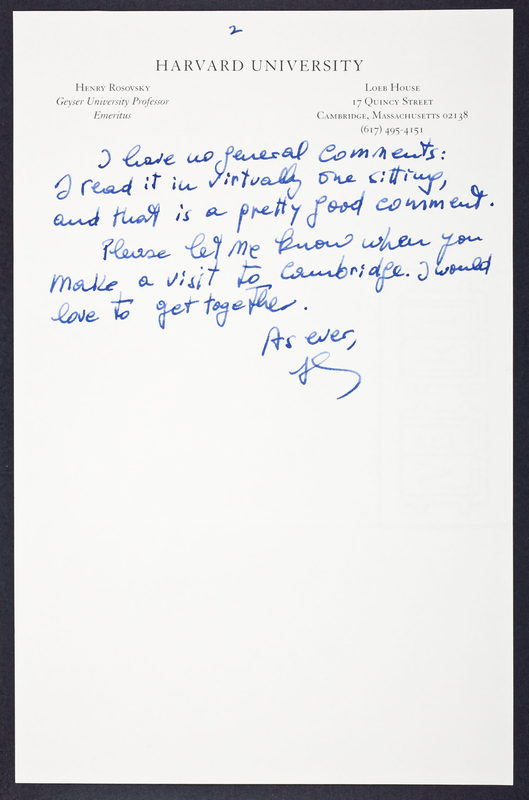 2
HARVARD UNIVERSITY
HENRY ROSOVSKY
Geyser University Professor
Emeritus
LOEB HOUSE
17 QUINCY STREET
CAMBRIDGE, MASSACHUSETTS 02138
(617) 495-4151
I have no general comments:
I read it in virtually one sitting,
and that is a pretty good comment.
Please let me know when you
make a visit to Cambridge. I would
love to get together.
As ever,